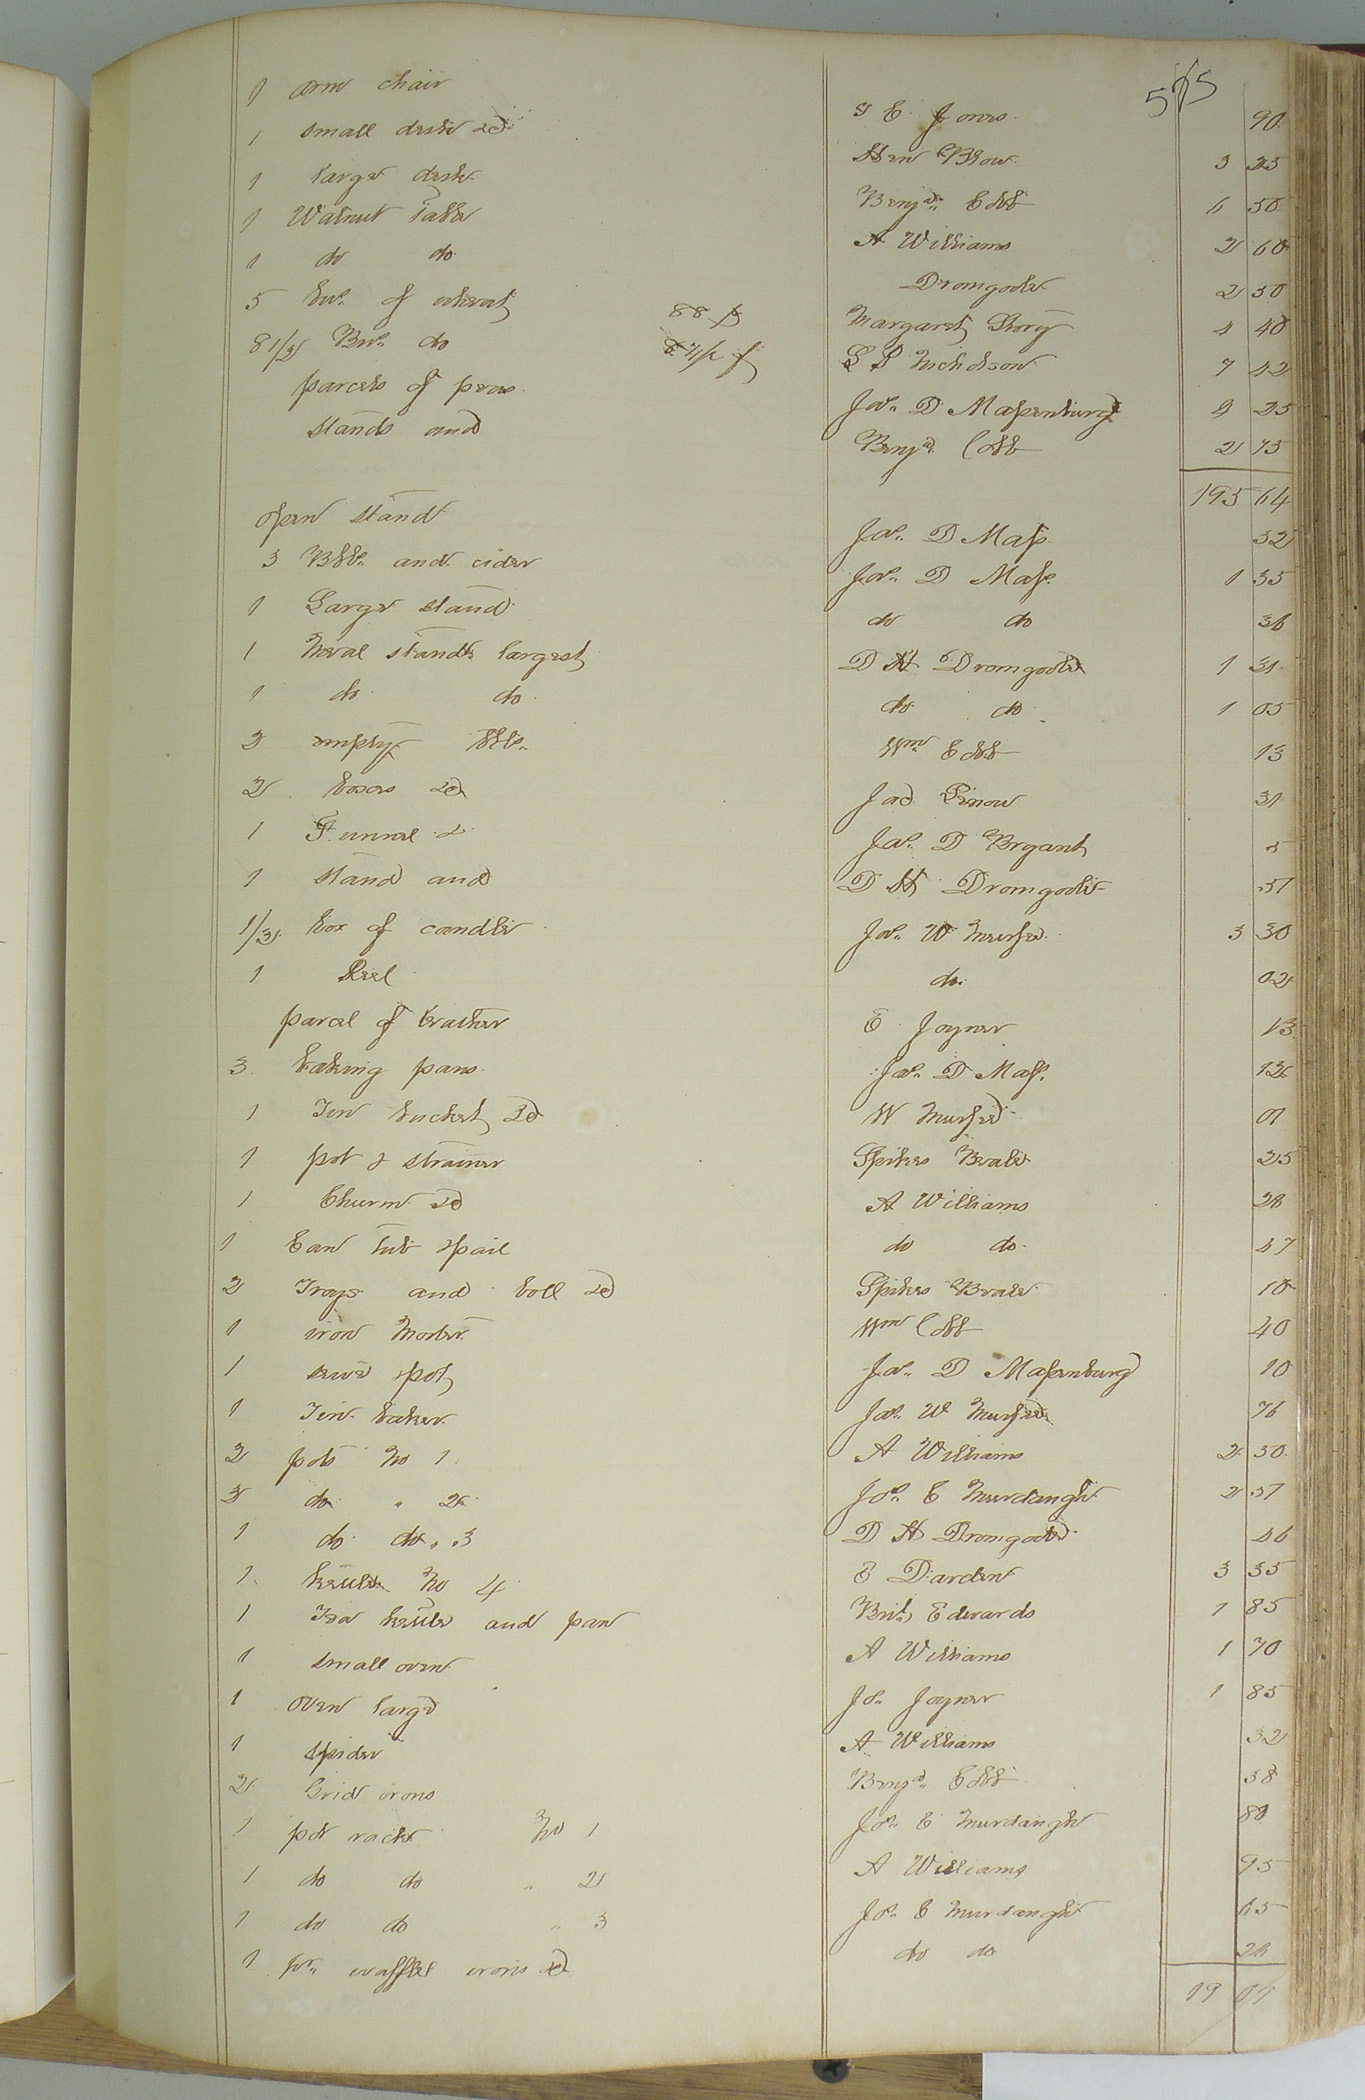 575
1 arm chair T E Jones 90
1 small desk &c Hen Brow 3 25
1 large desk Benjn. Cobb 6 50
1 Walnut Table A Williams 2 60
1 do do Dromgoole 2 50
5 bus. of wheat 88 p Margaret Rory 4 40
8 1/2 Bus. do 87 1/2 p L P Nicholson 7 42
parcels of peas Jas. D. Massenburg 2 25
stands and Benjn. Cobb 2 75
195 64
open stand Jas. D Mass 32
3 Bbls. and cider Jas. D Mass. 1 35
1 Large stand do do 36
1 Meal stands largest D H Dromgoole 1 31
1 do do do do 1 05
2 empty bbls. Wm Cobb 13
2 boxes &c Jas 31
1 Funnel & Jas. D Bryant 5
1 stand and D H Dromgoole 51
1/2 box of candles Jas. W Murfee 3 30
1 Reel do. 02
parcel of E Joyner 13
3 baking pans Jas. D Mass. 12
1 Tin bucket &c W Murfee 01
1 pot & strainer Spikes Beale 25
1 Churn &c A Williams 28
1 Can tub & pail do do 47
2 Trays and boll &c Spikes Beale 10
1 iron Morter Wm Cobb 40
1 pot Jas. D Massenburg 10
1 Tin baker Jas. W Murfee 76
2 pots No 1 A Williams 2 50
2 do " 2 Jos. E Murdaugh 2 51
1 do do " 3 D H Dromgoole 46
1 kettle No 4 E Darden 3 35
1 Tea kettle and pan Brit. Edwards 1 85
1 small oven A Williams 1 70
1 oven large Jo. Joyner 1 85
1 spider A Williams 32
2 Grid irons Benjn. Cobb 38
1 pot rack No 1 Jos. E Murdaugh 80
1 do do " 2 A Williams 95
1 do do " 3 Jos. E Murdaugh 65
1 pr. waffle irons &c do do 28
19